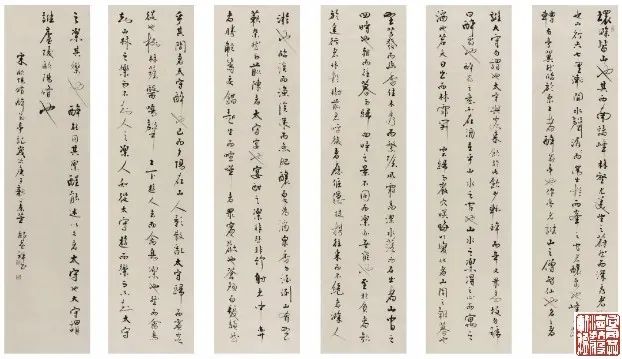 環滁皆山也其西南諸峰林壑尤美望之蔚然而深秀者
也山行六七里漸聞水聲潺潺而瀉出於兩峰之間者釀泉也峰回路
轉有亭翼然臨於泉上者醉翁亭也作亭者誰山之僧智仙也名之者
誰太守自謂也太守與客來飲於此飲少輒醉而年又最高故自號
曰醉翁也醉翁之意不在酒在乎山水之間也山水之樂得之心而寓之
酒也若夫日出而林霏開雲歸而巖穴暝晦明變化者山間之朝暮也
野芳發而幽香佳木秀而繁陰風霜高潔水落而石出者山間之
四時也朝而往暮而歸四時之景不同而樂亦無窮也至於負者歌
於途行者休於樹前者呼後者應傴僂提攜往來而不絕者滁人
遊也臨溪而漁溪深而魚肥釀泉為酒泉香而酒洌山肴野
蔌雜然而前陳者太守宴也宴酣之樂非絲非竹射者中弈
者勝觥籌交錯起坐而喧嘩者衆賓歡也蒼顏白髮頹然
乎其間者太守醉也已而夕陽在山人影散亂太守歸而賓客
從也樹林陰翳鳴聲上下遊人去而禽鳥樂也然而禽鳥
知山林之樂而不知人之樂人知從太守遊而樂而不知太守
之樂其樂也醉能同其樂醒能述以文者太守也太守謂
誰廬陵歐陽脩也
宋歐陽脩醉翁亭記歲次庚子